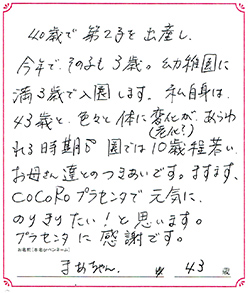 40歳で第2子を出産し、
今年で、その子も3歳。幼稚園に
満3歳で入園します。私自身は
43歳と、色々と体に変化が、あらわ
(老化!)
れる時期。園では10歳程若い、
お母さん達とのつきあいです。ますます、
COCORO プラセンタで元気に、
のりきりたい!と思います。
プラセンタに感謝です。
お名前(本名orペンネーム)
まあちゃん. 43 歳